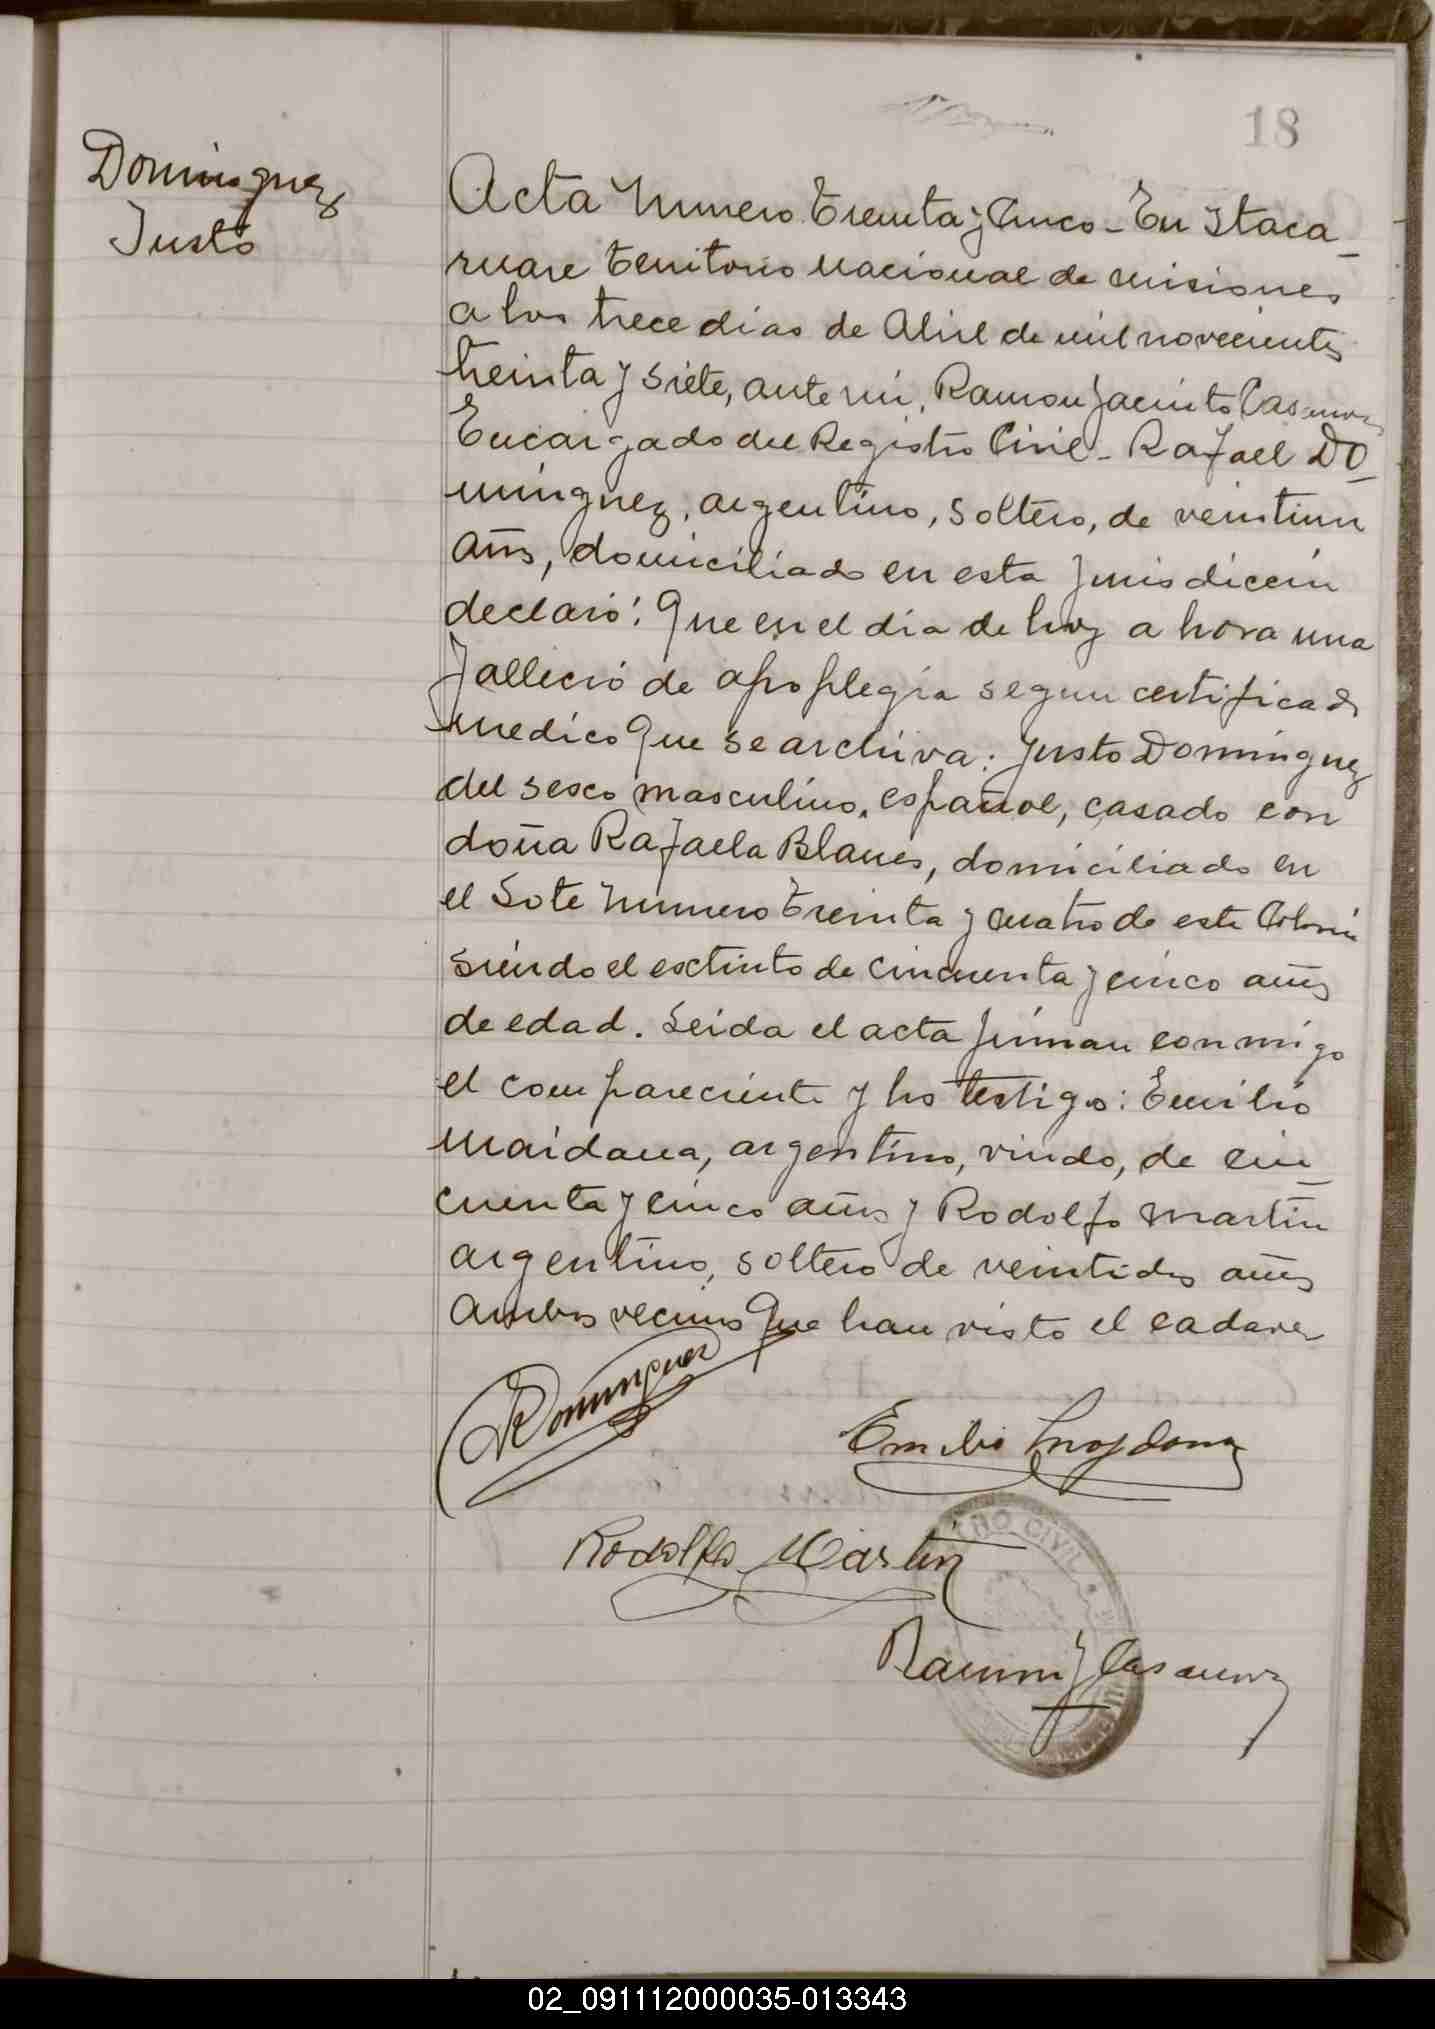 18
Dominguez
Justo
Acta Numero Treinta y Cinco - En Itaca-
ruare Territorio Nacional de Misiones
a los trece dias de Abril de mil novecientos
treinta y siete, ante mi, Ramon Jacinto Casanova
Encargado del Registro Civil - Rafael Do-
minguez, argentino, soltero, de veintiun
años, domiciliado en esta Jurisdiccion
declaró: Que en el dia de hoy a hora una
falleció de apoplegia segun certificado
medico que se archiva: Justo Dominguez
del sesco masculino, español, casado con
doña Rafaela Blanes, domiciliado en
el Lote numero Treinta y cuatro de esta Colonia
siendo el esctinto de cincuenta y cinco años
de edad. Leida el acta firman conmigo
el compareciente y los testigos: Emilio
Maidana, argentino, viudo, de cin-
cuenta y cinco años y Rodolfo Martin
argentino, soltero de veintidos años
ambos vecinos que han visto el cadaver
RDominguez
Emilio Maydana
Rodolfo Martin
CIVIL
Ramon J Casanova
02_091112000035-013343